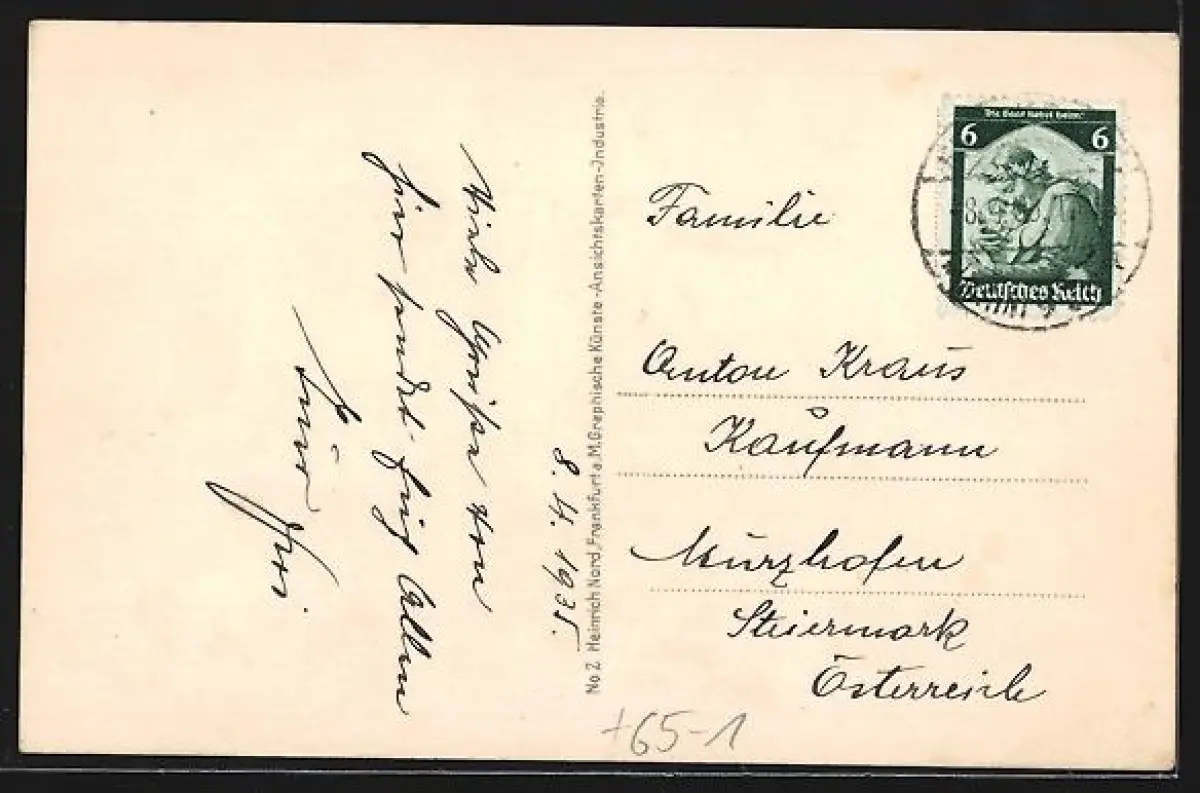 Viele Grüße von
hier sendet Euch Allen
Eure
8.4.1935.
No 2 Heinrich Nord, Frankfurt a. M. Graphische Künste-Ansichtskarten-Industrie.
Die Saar kehrt heim!
6 6
Deutsches Reich
Familie
Anton Kraus
Kaufmann
Mürzhofen
Steiermark
Österreich
+65-1